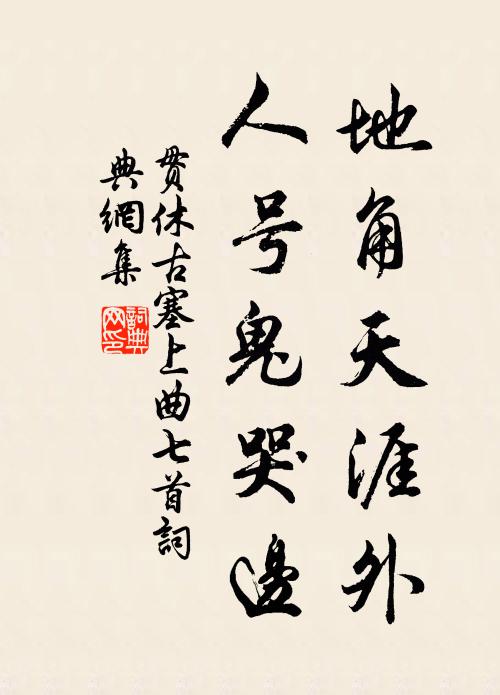 地角天涯外
人号鬼哭邊
貫休古塞上曲七首詞
典網集
詞典
网印